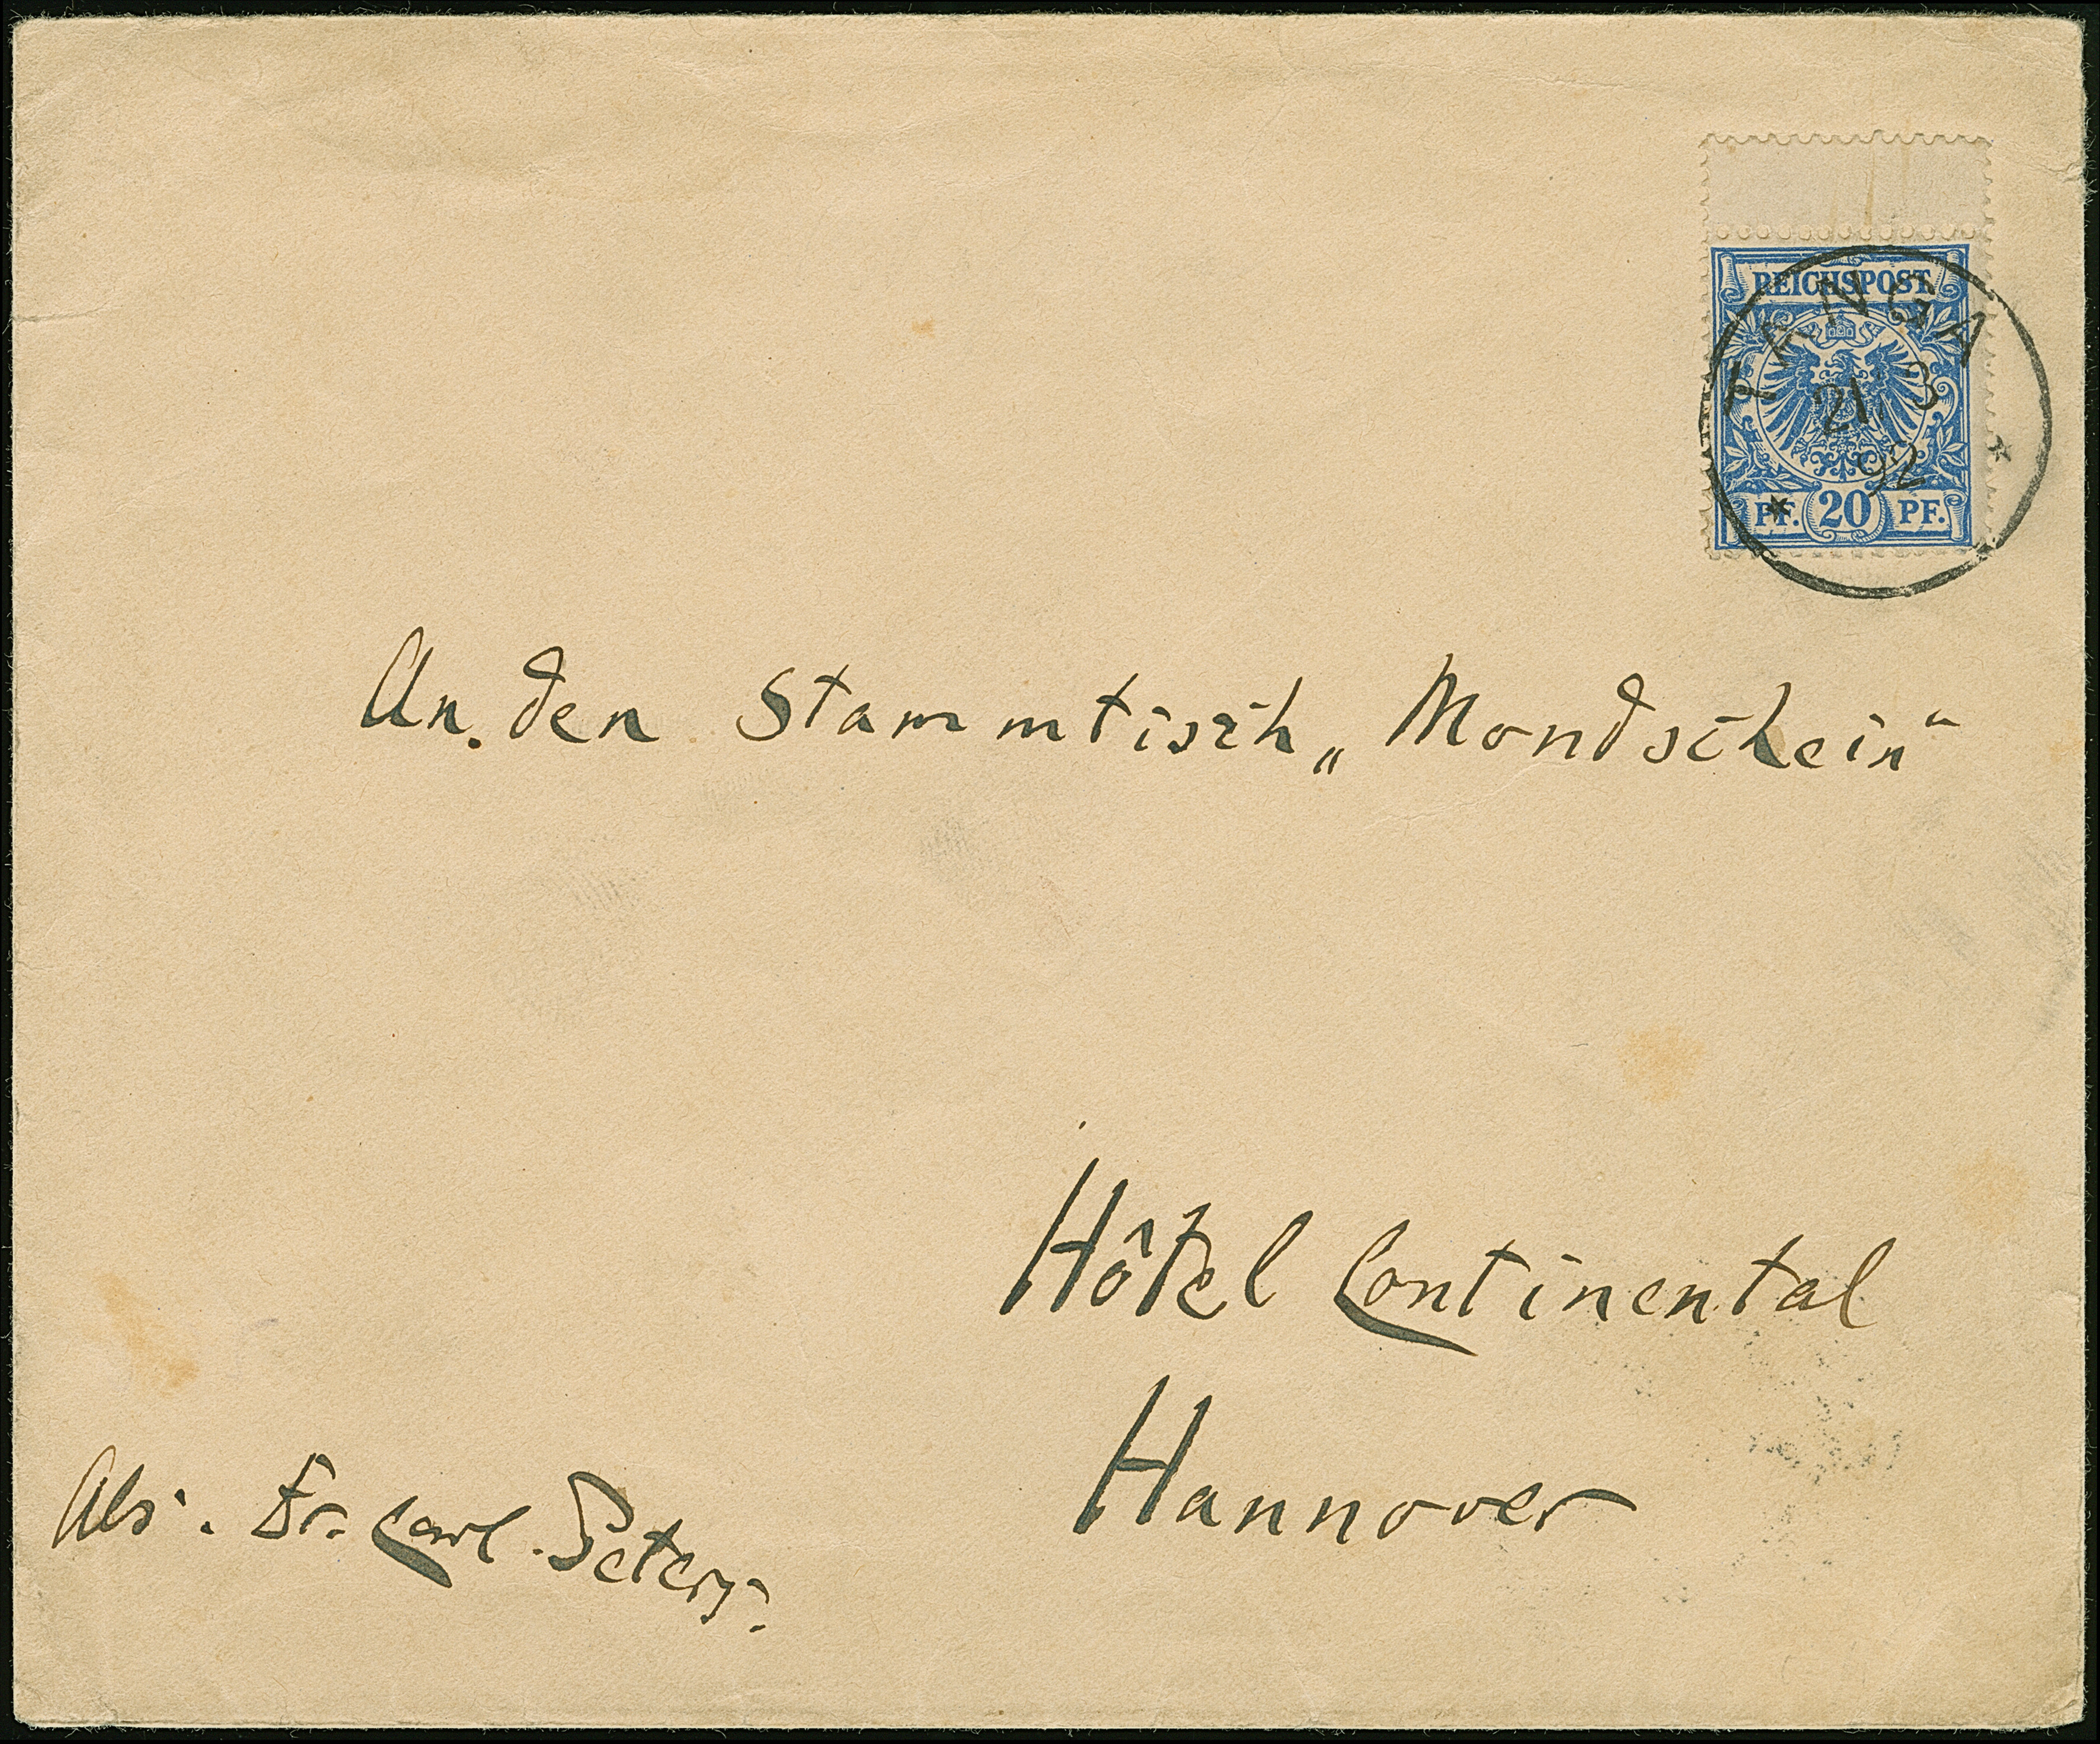 REICHSPOST
TANGA
21/3
92
PF. 20 PF.
An den Stammtisch „Mondschein“
Hôtel Continental
Hannover
Abs. Dr. Carl Peters.